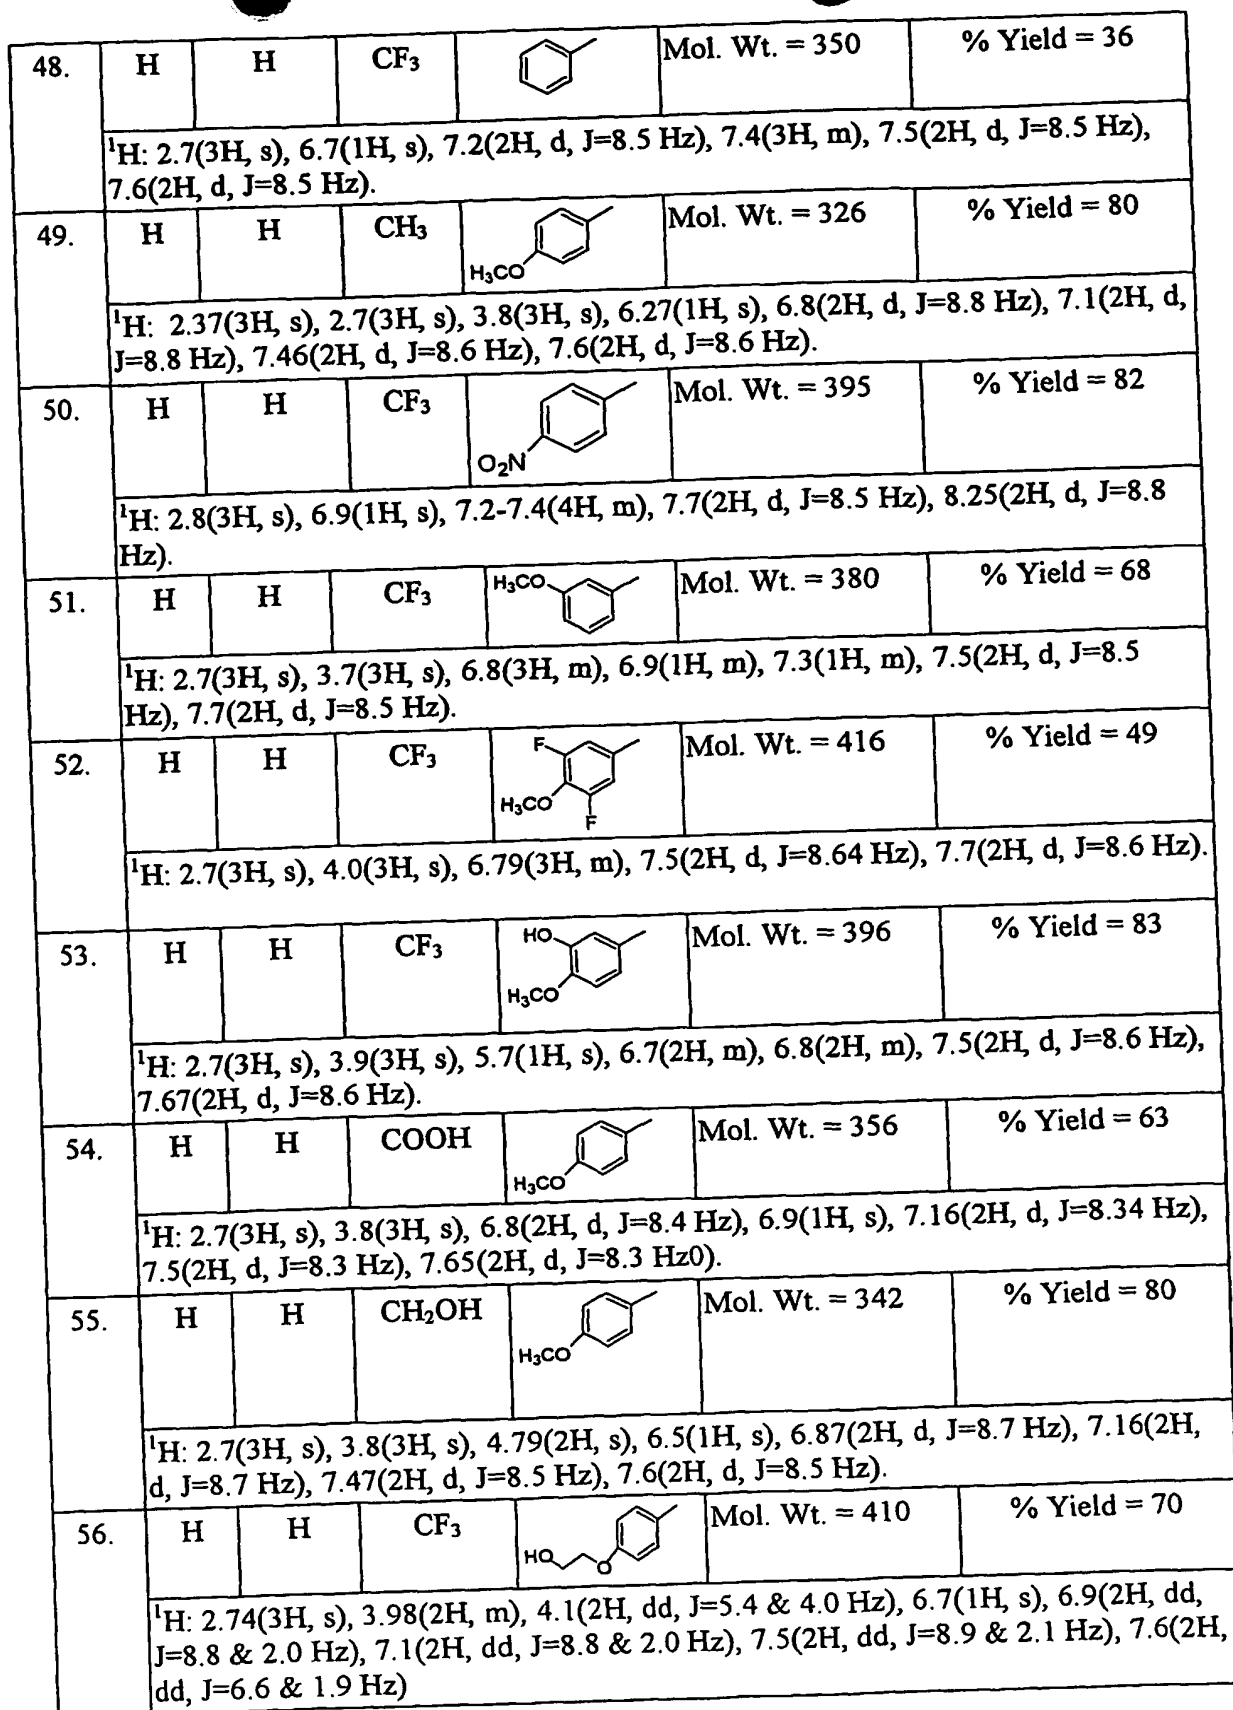 48. H H CF₃ Mol. Wt. = 350 % Yield = 36
¹H: 2.7(3H, s), 6.7(1H, s), 7.2(2H, d, J=8.5 Hz), 7.4(3H, m), 7.5(2H, d, J=8.5 Hz),
7.6(2H, d, J=8.5 Hz).
49. H H CH₃ H₃CO Mol. Wt. = 326 % Yield = 80
¹H: 2.37(3H, s), 2.7(3H, s), 3.8(3H, s), 6.27(1H, s), 6.8(2H, d, J=8.8 Hz), 7.1(2H, d,
J=8.8 Hz), 7.46(2H, d, J=8.6 Hz), 7.6(2H, d, J=8.6 Hz).
50. H H CF₃ O₂N Mol. Wt. = 395 % Yield = 82
¹H: 2.8(3H, s), 6.9(1H, s), 7.2-7.4(4H, m), 7.7(2H, d, J=8.5 Hz), 8.25(2H, d, J=8.8
Hz).
51. H H CF₃ H₃CO Mol. Wt. = 380 % Yield = 68
¹H: 2.7(3H, s), 3.7(3H, s), 6.8(3H, m), 6.9(1H, m), 7.3(1H, m), 7.5(2H, d, J=8.5
Hz), 7.7(2H, d, J=8.5 Hz).
52. H H CF₃ F H₃CO F Mol. Wt. = 416 % Yield = 49
¹H: 2.7(3H, s), 4.0(3H, s), 6.79(3H, m), 7.5(2H, d, J=8.64 Hz), 7.7(2H, d, J=8.6 Hz).
53. H H CF₃ HO H₃CO Mol. Wt. = 396 % Yield = 83
¹H: 2.7(3H, s), 3.9(3H, s), 5.7(1H, s), 6.7(2H, m), 6.8(2H, m), 7.5(2H, d, J=8.6 Hz),
7.67(2H, d, J=8.6 Hz).
54. H H COOH H₃CO Mol. Wt. = 356 % Yield = 63
¹H: 2.7(3H, s), 3.8(3H, s), 6.8(2H, d, J=8.4 Hz), 6.9(1H, s), 7.16(2H, d, J=8.34 Hz),
7.5(2H, d, J=8.3 Hz), 7.65(2H, d, J=8.3 Hz0).
55. H H CH₂OH H₃CO Mol. Wt. = 342 % Yield = 80
¹H: 2.7(3H, s), 3.8(3H, s), 4.79(2H, s), 6.5(1H, s), 6.87(2H, d, J=8.7 Hz), 7.16(2H,
d, J=8.7 Hz), 7.47(2H, d, J=8.5 Hz), 7.6(2H, d, J=8.5 Hz).
56. H H CF₃ HO O Mol. Wt. = 410 % Yield = 70
¹H: 2.74(3H, s), 3.98(2H, m), 4.1(2H, dd, J=5.4 & 4.0 Hz), 6.7(1H, s), 6.9(2H, dd,
J=8.8 & 2.0 Hz), 7.1(2H, dd, J=8.8 & 2.0 Hz), 7.5(2H, dd, J=8.9 & 2.1 Hz), 7.6(2H,
dd, J=6.6 & 1.9 Hz)